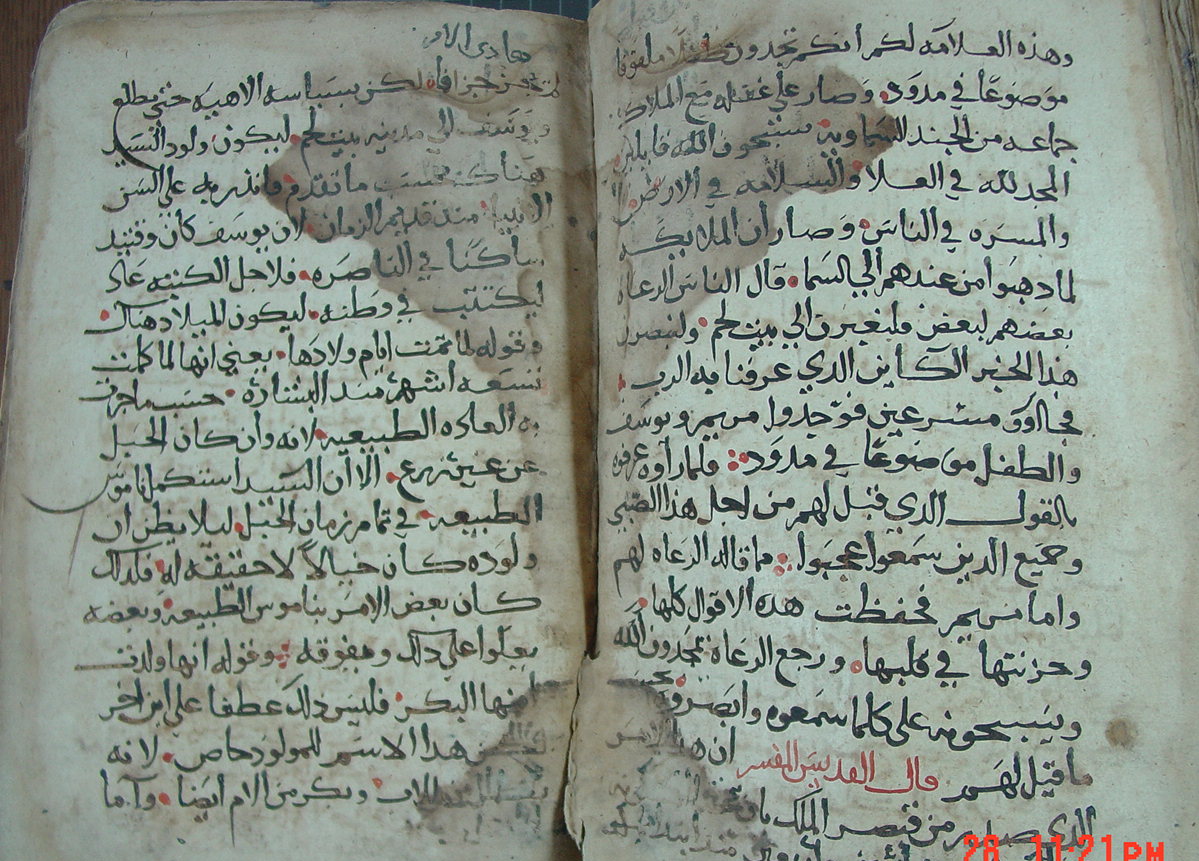 وهذه العلامه لكم انكم تجدون طفلا ملفوفا
موضوعًا في مدود وصار علي غفله مع الملاك
جماعه من الجند السماويه يسبحون الله قايلين
المجد لله في العلا والسلامه في الارض
والمسره في الناس وصار ان الملايكه
لما دهبوا من عندهم الي السما قال الناس الرعاه
بعضهم لبعض فلنعبرن الي بيت لحم ولنبصرن
هدا الخبر الكاين الدي عرفنا به الرب
فجااوو مسرعين فوجدوا مريم ويوسف
والطفل موضوعًا في مدود فلما راوه عرفوه
بالقول الدي قيل لهم من اجل هدا الصبي
وجميع الدين سمعوا عجبوا مما قاله الرعاه لهم
واما مريم فحفظت هده الاقوال كلها
وحزنتها في قلبها ورجع الرعاه يمجدون الله
ويسبحونه علي كلما سمعوه وابصروه
ما قيل لهم قال القديس المفسر ان هدا الامر
الدي صار من قيصر الملك
هادي الامر
لم جزافا لكن بسياسه الاهيه حتي يطلع
يوسف الي مدينه بيت لحم ليكون ولود السيد
هناك حسب ما تقدم فاندر به علي السن
الانبيا مند قديم الزمان لان يوسف كان وقتيد
ساكنًا في الناصره فلاجل الكتبه عاد
ليكتتب في وطنه ليكون الميلاد هناك
وقوله لما تمت ايام ولادها يعني انها لما كملت
تسعه اشهر مند البشاره حسب ما جرت
به العاده الطبيعيه لانه وان كان الحبل
عن غير زرع الا ان السيد استكمل ناموس
الطبيعه في تمام زمان الحبل ليلا يظن ان
ولوده كان خيالاً لا حقيقه له فلدلك
كان بعض الامر بناموس الطبيعه وبعضه
يعلوا علي دلك ويفوقه وقوله انها ولدت
ابنها البكر فليس دلك عطفا علي ابن اخر
هدا الاسم للمولود خاص لانه
للاب وبكر من الام ايضا واما
28 11:21 PM